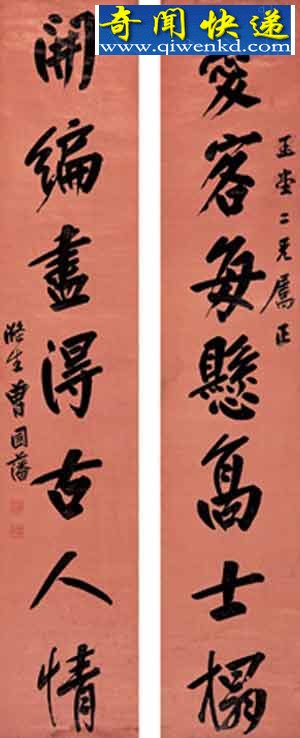 奇闻快递
www.qiwenkd.com
玉堂二兄屬正
愛客每懸高士榻
開編盡得古人情
滌生曾國藩